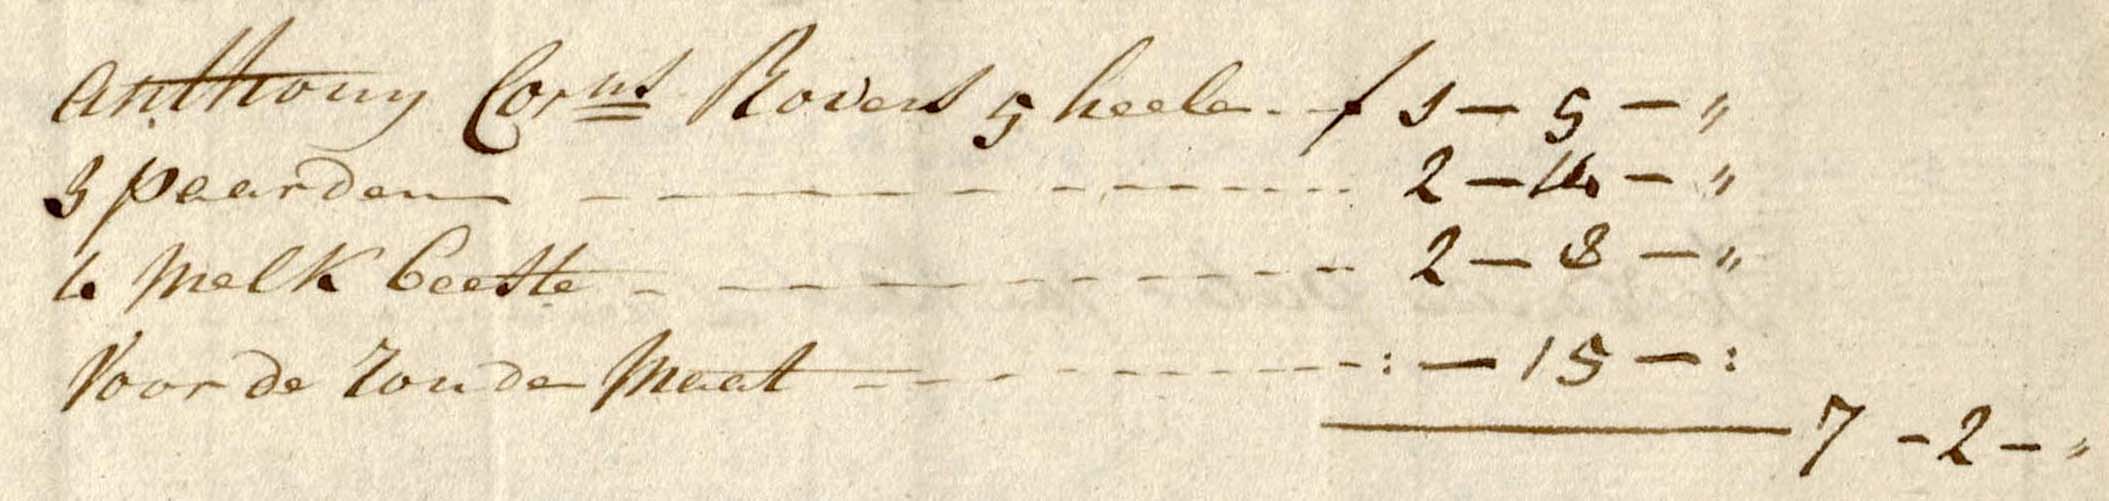 Anthony Cor<sup>ns</sup> Rovers 5 heele - f 1 - 5 - "
3 paarden - - - - - - - - - - 2 - 14 - "
4 melk beeste - - - - - - - - - - 2 - 8 - "
Voor de ronde maat - - - - - - - - : - 15 - :
7 - 2 - "